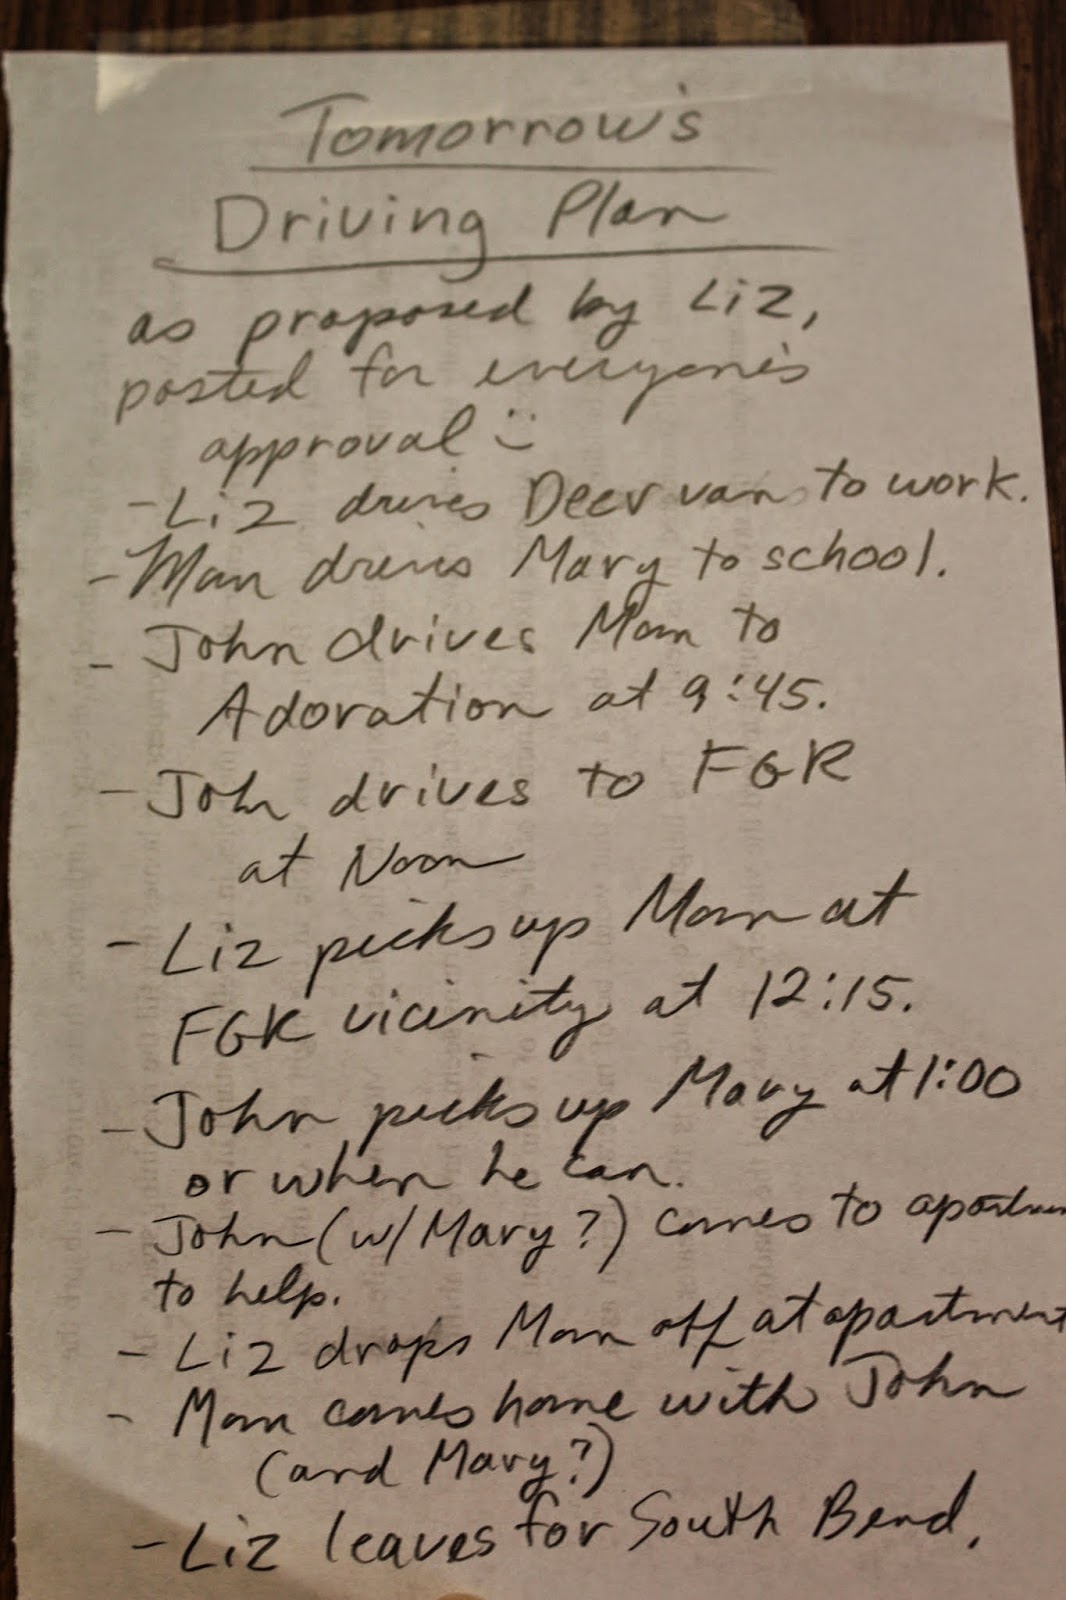 Tomorrow's
Driving Plan
as proposed by Liz,
posted for everyone's
approval :)
- Liz drives Deer van to work.
- Mom drives Mary to school.
- John drives Mom to
Adoration at 9:45.
- John drives to FGR
at Noon
- Liz picks up Mom at
FGR vicinity at 12:15.
- John picks up Mary at 1:00
or when he can.
- John (w/ Mary?) comes to
to help.
- Liz drops Mom off at apartment
- Mom comes home with John
(and Mary?)
- Liz leaves for South Bend.